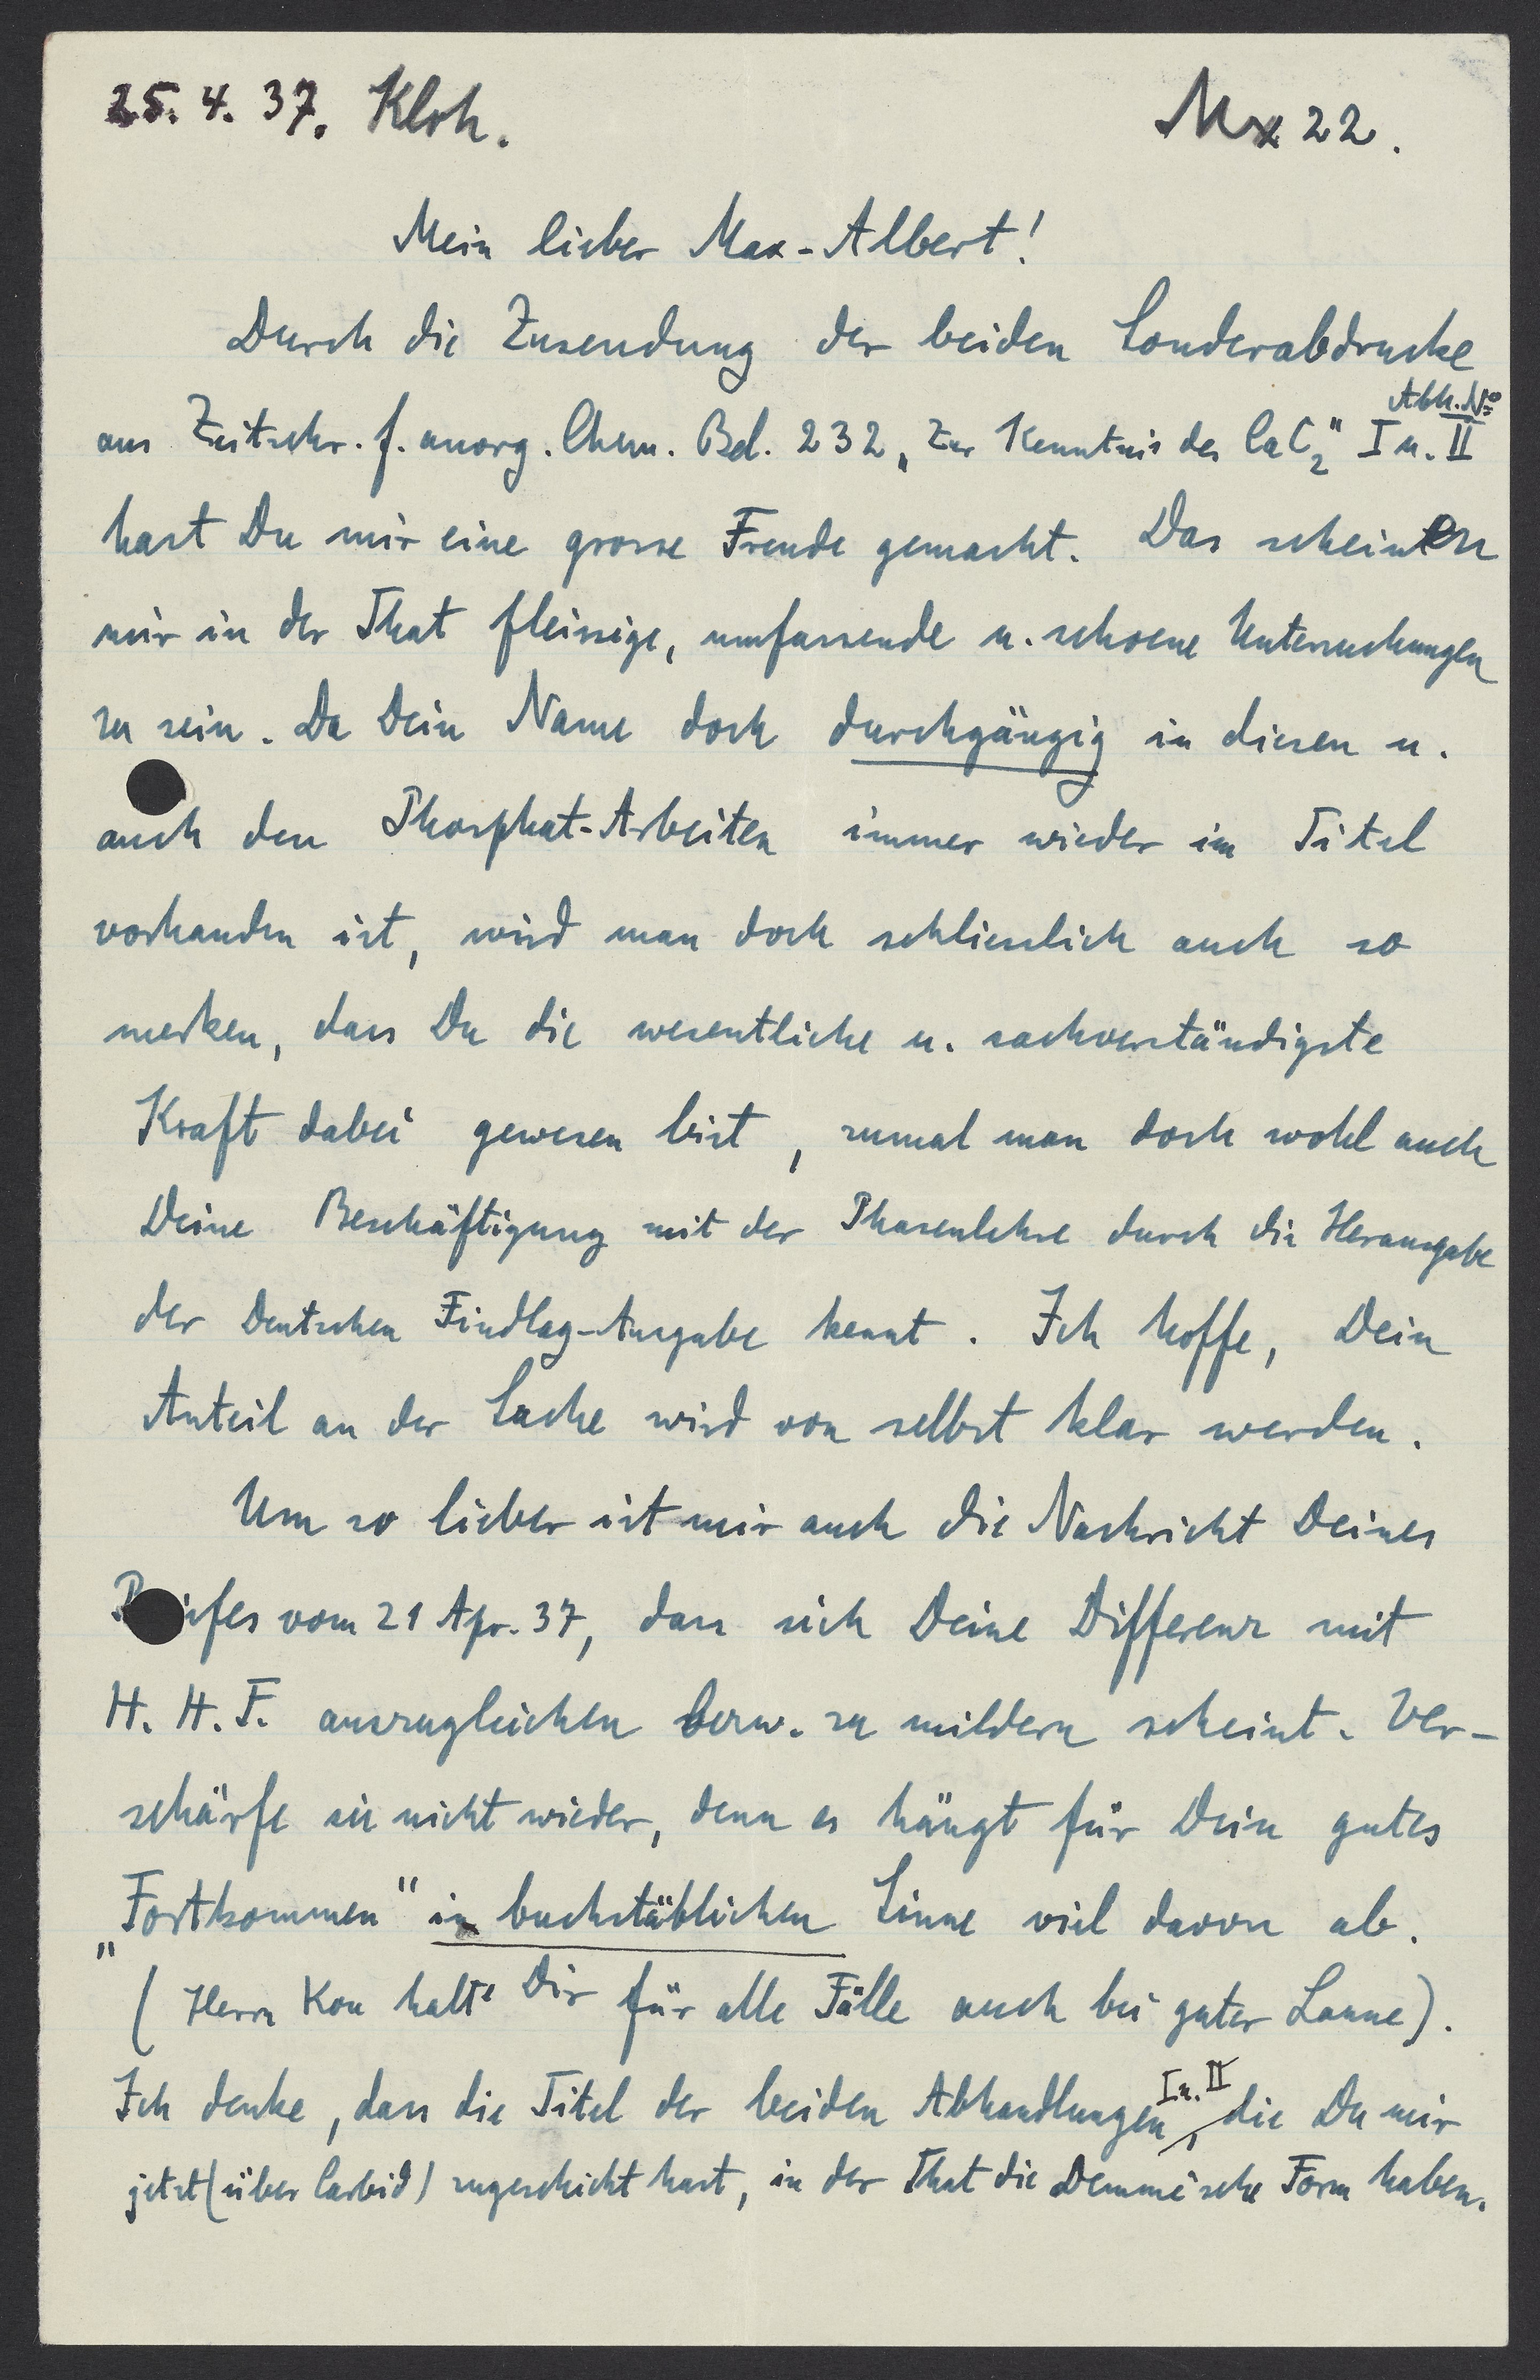 25. 4. 37. Klsh.
Mx 22.
Mein lieber Max-Albert!
Durch die Zusendung der beiden Sonderabdrucke
Abh. No
aus Zeitschr. f. anorg. Chem. Bd. 232 „Zur Kenntnis des CaC2" I u. II
hast Du mir eine grosse Freude gemacht. Das scheinen
mir in der That fleissige, umfassende u. schoene Untersuchungen
zu sein. Da Dein Name doch durchgängig in diesen u.
auch den Phosphat-Arbeiten immer wieder im Titel
vorhanden ist, wird man doch schliesslich auch so
merken, dass Du die wesentliche u. sachverständigste
Kraft dabei gewesen bist, zumal man doch wohl auch
Deine Beschäftigung mit der Phasenlehre durch die Herausgabe
der Deutschen Findlay-Ausgabe kennt. Ich hoffe, Dein
Anteil an der Sache wird von selbst klar werden.
Um so lieber ist mir auch die Nachricht Deines
Briefes vom 21 Apr. 37, dass sich Deine Differenz mit
H. H. F. auszugleichen bezw. zu mildern scheint. Ver-
schärfe sie nicht wieder, denn es hängt für Dein gutes
„Fortkommen" in buchstäblichen Sinne viel davon ab.
(Herrn Kon halte Dir für alle Fälle auch bei guter Laune).
Ich denke, dass die Titel der beiden Abhandlungen I u. II, die Du mir
jetzt (über Carbid) zugeschickt hast, in der That die Demme'sche Form haben.